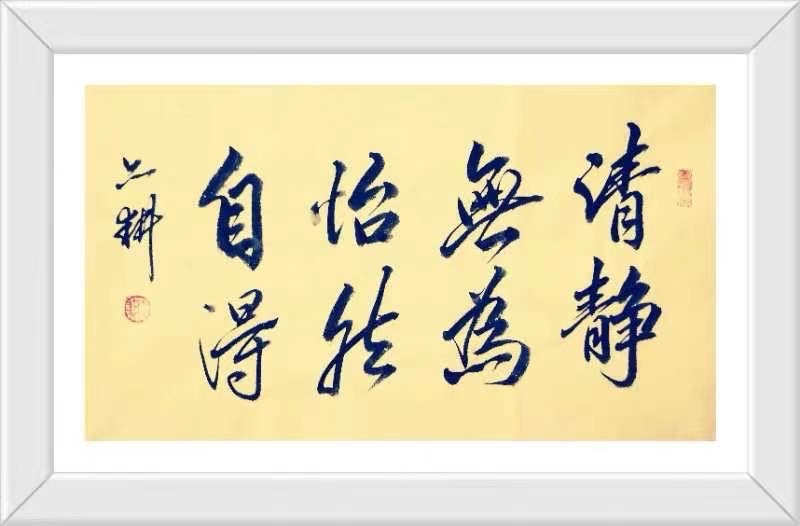 清静
無為
怡然
自得
耕